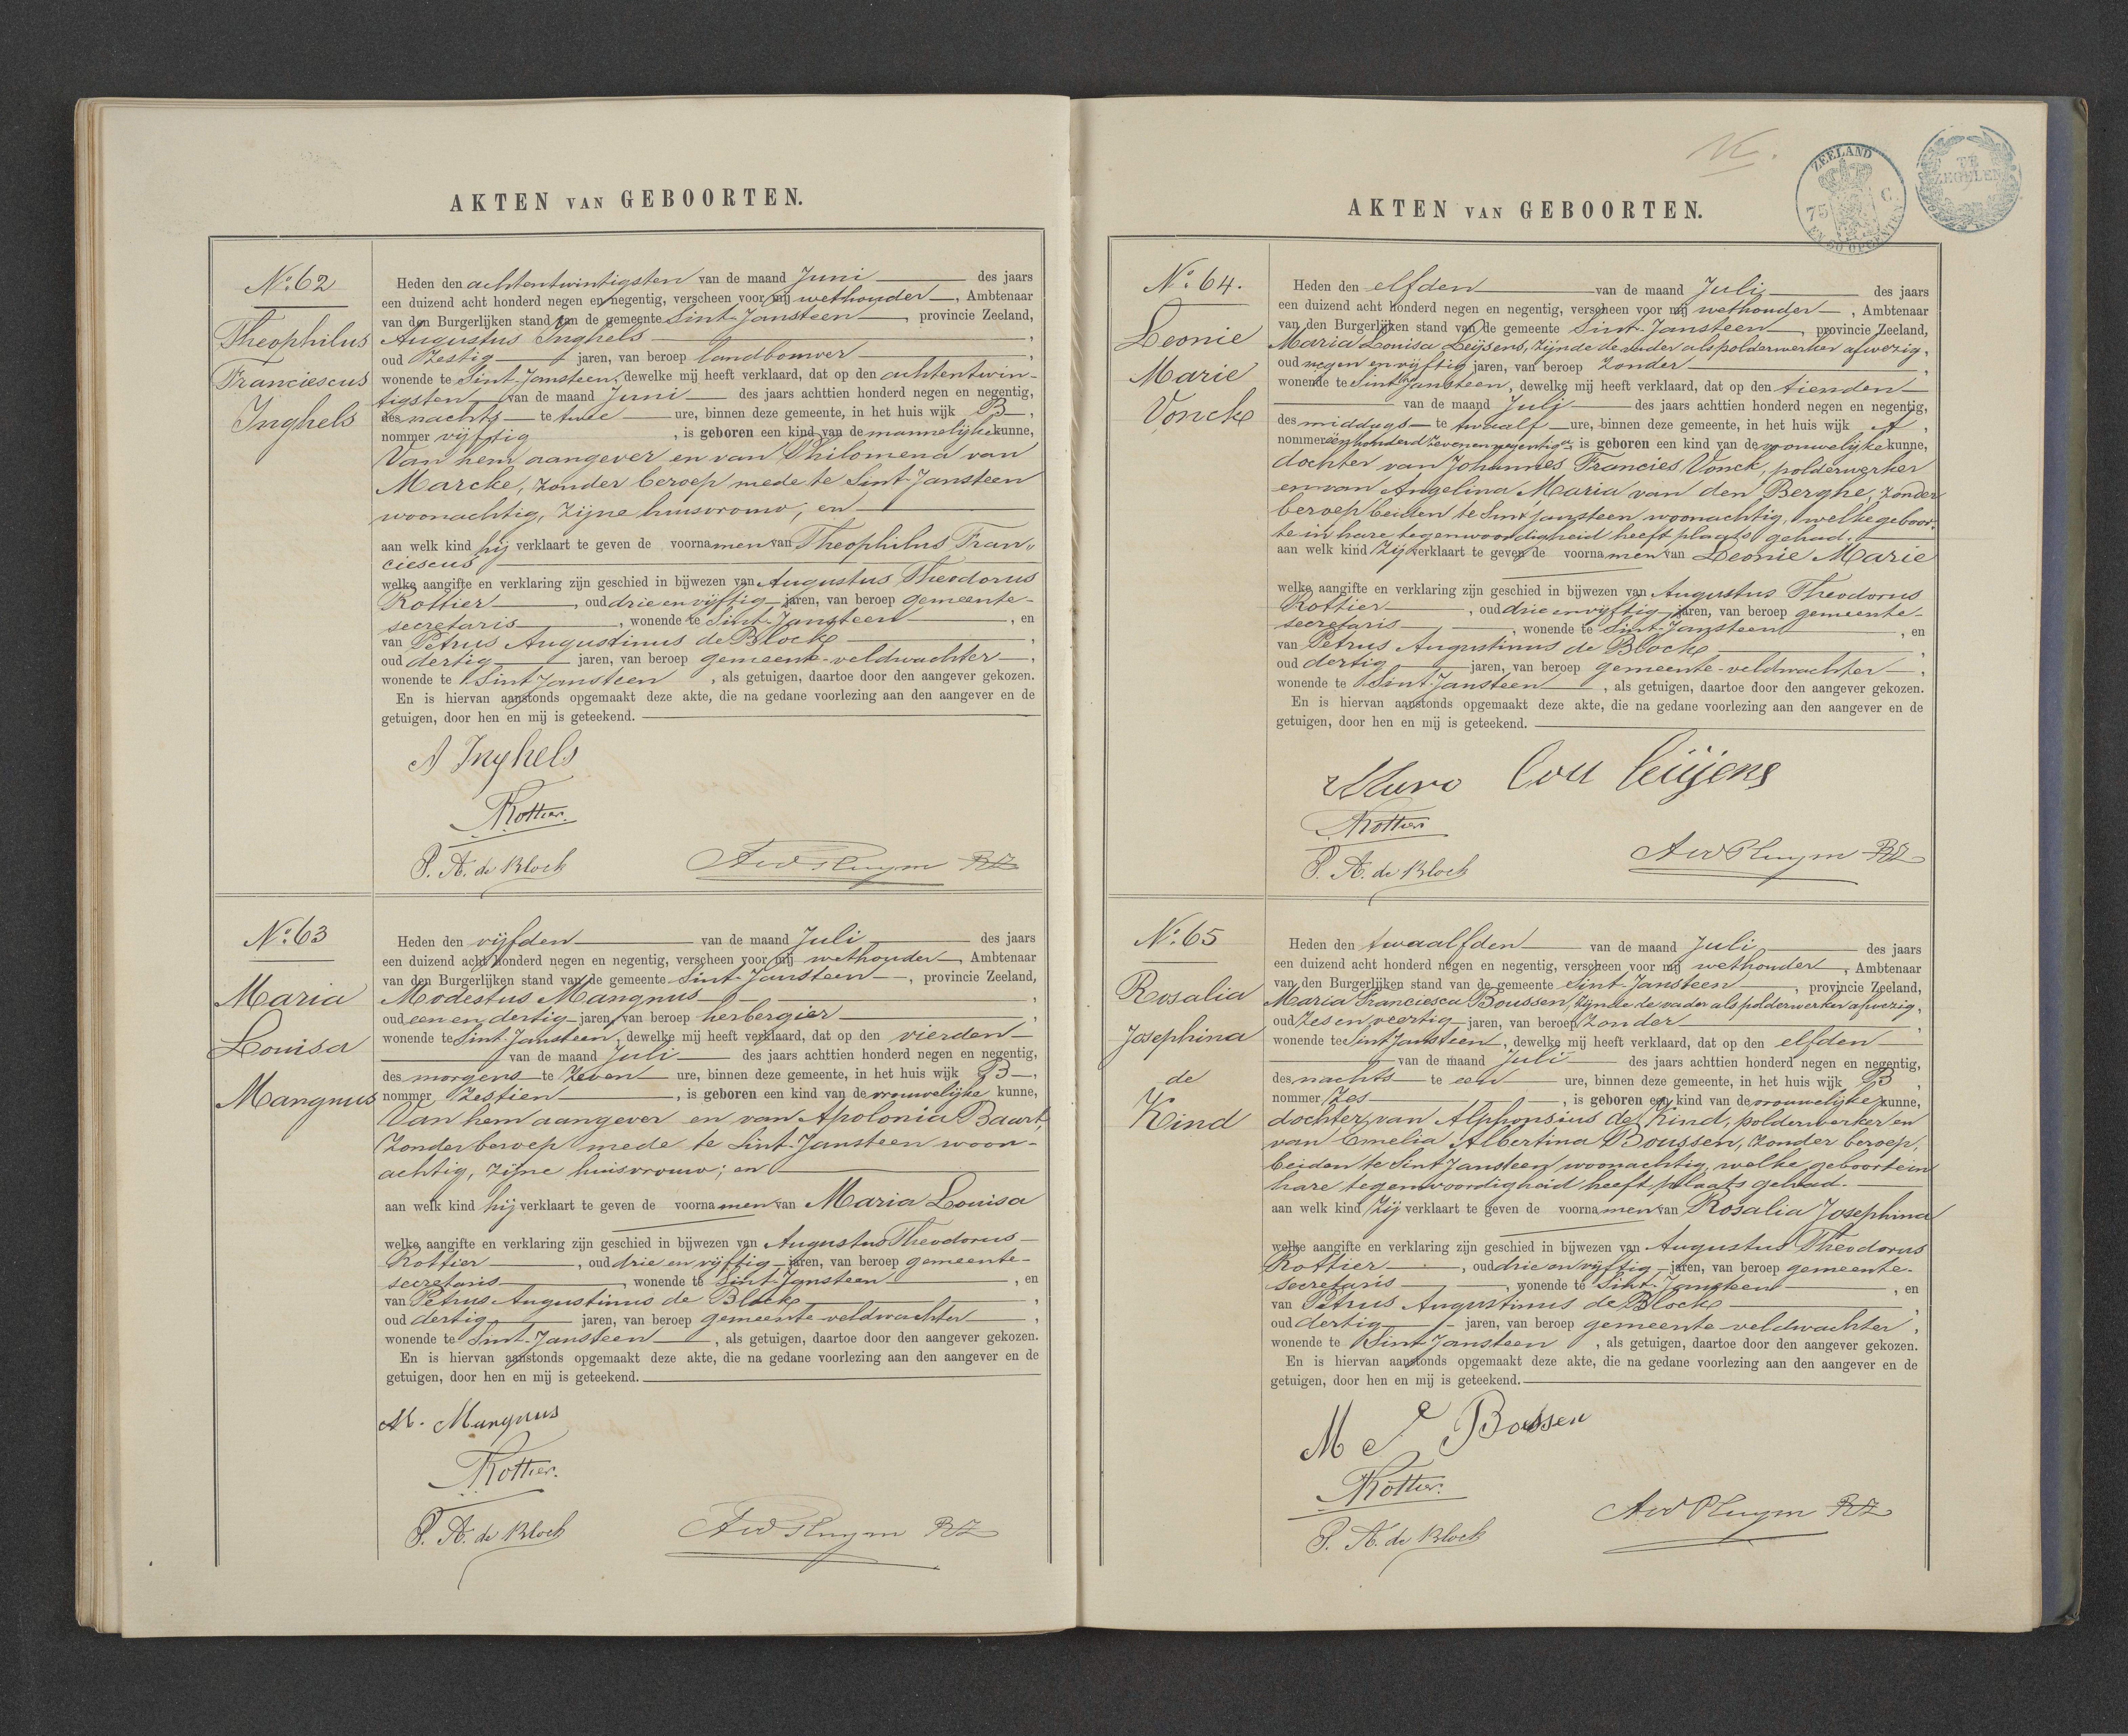 AKTEN VAN GEBOORTEN.
No. 62
Theophilus
Franciescus
Inghels
Heden den achtentwintigsten van de maand Juni des jaars
een duizend acht honderd negen en negentig, verscheen voor mij wethouder, Ambtenaar
van den Burgerlijken stand van de gemeente Sint-Jansteen, provincie Zeeland,
Augustus Inghels,
oud Zestig jaren, van beroep landbouwer,
wonende te Sint-Jansteen, dewelke mij heeft verklaard, dat op den achtentwin-
tigsten van de maand Juni des jaars achttien honderd negen en negentig,
des nachts te twee ure, binnen deze gemeente, in het huis wijk B,
nommer vijftig, is geboren een kind van de mannelijke kunne,
Van hem aangever en van Philomena van
Marcke, zonder beroep mede te Sint-Jansteen
woonachtig, zijne huisvrouw; en
aan welk kind hij verklaart te geven de voornamen van Theophilus Fran„
ciescus
welke aangifte en verklaring zijn geschied in bijwezen van Augustus Theodorus
Rottier, oud drie en vijftig jaren, van beroep gemeente-
secretaris, wonende te Sint-Jansteen, en
van Petrus Augustinus de Block,
oud dertig jaren, van beroep gemeente-veldwachter,
wonende te Sint Jansteen, als getuigen, daartoe door den aangever gekozen.
En is hiervan aanstonds opgemaakt deze akte, die na gedane voorlezing aan den aangever en de
getuigen, door hen en mij is geteekend.
A Inghels
Rottier.
P. A. de Block
No. 63
Maria
Louisa
Mangnus
Heden den vijfden van de maand Juli des jaars
een duizend acht honderd negen en negentig, verscheen voor mij wethouder, Ambtenaar
van den Burgerlijken stand van de gemeente Sint-Jansteen, provincie Zeeland,
Modestus Mangnus,
oud een en dertig jaren, van beroep herbergier,
wonende te Sint Jansteen, dewelke mij heeft verklaard, dat op den vierden
van de maand Juli des jaars achttien honderd negen en negentig,
des morgens te Zeven ure, binnen deze gemeente, in het huis wijk B,
nommer Zestien, is geboren een kind van de vrouwelijke kunne,
Van hem aangever en van Apolonia Baart,
Zonder beroep mede te Sint-Jansteen woon-
achtig, zijne huisvrouw; en
aan welk kind hij verklaart te geven de voornamen van Maria Louisa
welke aangifte en verklaring zijn geschied in bijwezen van Augustus Theodorus
Rottier, oud drie en vijftig jaren, van beroep gemeente-
secretaris, wonende te Sint-Jansteen, en
van Petrus Augustinus de Block,
oud dertig jaren, van beroep gemeente veldwachter,
wonende te Sint-Jansteen, als getuigen, daartoe door den aangever gekozen.
En is hiervan aanstonds opgemaakt deze akte, die na gedane voorlezing aan den aangever en de
getuigen, door hen en mij is geteekend.
M. Mangnus
Rottier.
P. A. de Block
ZEELAND
75 C
EN 50 OPCENTEN
TE
ZEGELEN
AKTEN VAN GEBOORTEN.
No. 64.
Leonie
Marie
Vonck
Heden den elfden van de maand Juli des jaars
een duizend acht honderd negen en negentig, verscheen voor mij wethouder, Ambtenaar
van den Burgerlijken stand van de gemeente Sint-Jansteen, provincie Zeeland,
Maria Louisa Leijsens, zijnde de vader als polderwerker afwezig,
oud negen en vijftig jaren, van beroep Zonder,
wonende te Sint Jansteen, dewelke mij heeft verklaard, dat op den tienden
van de maand Juli des jaars achttien honderd negen en negentig,
des middags te twaalf ure, binnen deze gemeente, in het huis wijk A,
nommer éénhonderd zevenennegentig a, is geboren een kind van de vrouwelijke kunne,
dochter van Johannes Francies Vonck, polderwerker
en van Angelina Maria van den Berghe, zonder
beroep beiden te Sint Jansteen woonachtig, welke geboor-
te in hare tegenwoordigheid heeft plaats gehad.
aan welk kind Zij verklaart te geven de voornamen van Leonie Marie
welke aangifte en verklaring zijn geschied in bijwezen van Augustus Theodorus
Rottier, oud drie en vijftig jaren, van beroep gemeente-
secretaris, wonende te Sint-Jansteen, en
van Petrus Augustinus de Block,
oud dertig jaren, van beroep gemeente-veldwachter,
wonende te Sint-Jansteen, als getuigen, daartoe door den aangever gekozen.
En is hiervan aanstonds opgemaakt deze akte, die na gedane voorlezing aan den aangever en de
getuigen, door hen en mij is geteekend.
Lou leijsens
Rottier
P. A. de Block
No. 65
Rosalia
Josephina
de
Kind
Heden den twaalfden van de maand Juli des jaars
een duizend acht honderd negen en negentig, verscheen voor mij wethouder, Ambtenaar
van den Burgerlijken stand van de gemeente Sint-Jansteen, provincie Zeeland,
Maria Franciesca Boussen, zijnde de vader als polderwerker afwezig,
oud Zes en veertig jaren, van beroep Zonder,
wonende te Sint Jansteen, dewelke mij heeft verklaard, dat op den elfden
van de maand Juli des jaars achttien honderd negen en negentig,
des nachts te een ure, binnen deze gemeente, in het huis wijk B,
nommer Zes, is geboren een kind van de vrouwelijke kunne,
dochter van Alphonsius de Kind, polderwerker en
van Emelia Albertina Boussen, Zonder beroep,
beiden te Sint Jansteen woonachtig, welke geboorte in
hare tegenwoordigheid heeft plaats gehad.
aan welk kind Zij verklaart te geven de voornamen van Rosalia Josephina
welke aangifte en verklaring zijn geschied in bijwezen van Augustus Theodorus
Rottier, oud drie en vijftig jaren, van beroep gemeente-
secretaris, wonende te Sint-Jansteen, en
van Petrus Augustinus de Block,
oud dertig jaren, van beroep gemeente veldwachter,
wonende te Sint Jansteen, als getuigen, daartoe door den aangever gekozen.
En is hiervan aanstonds opgemaakt deze akte, die na gedane voorlezing aan den aangever en de
getuigen, door hen en mij is geteekend.
M F Boussen
Rottier.
P. A. de Block